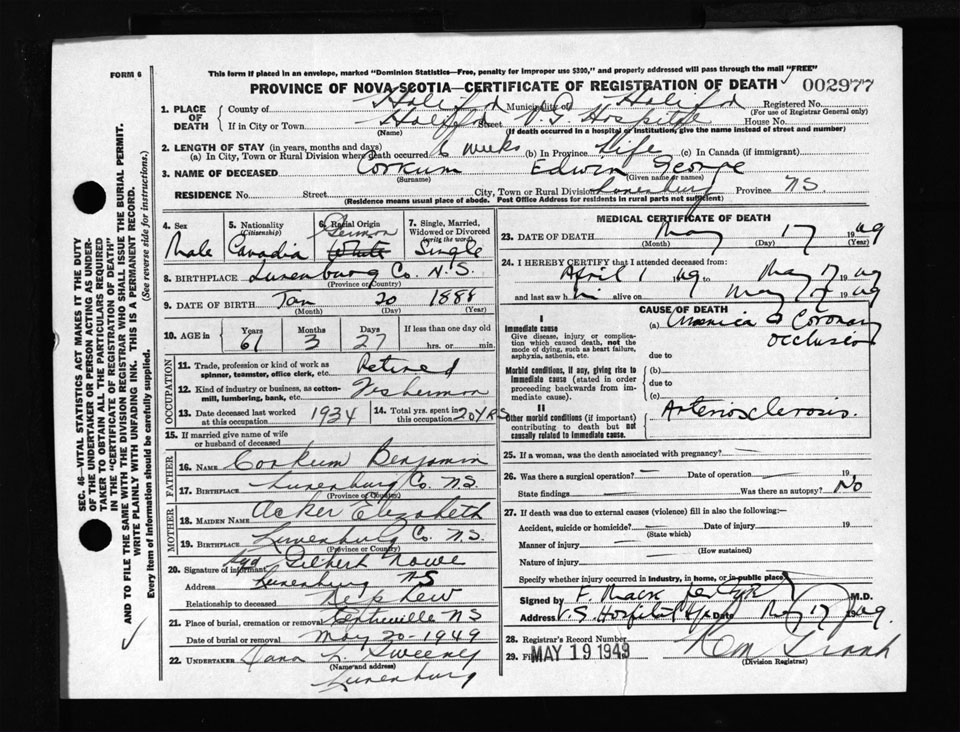 FORM 6
This form if placed in an envelope, marked "Dominion Statistics—Free, penalty for improper use $300," and properly addressed will pass through the mail "FREE"
PROVINCE OF NOVA SCOTIA—CERTIFICATE OF REGISTRATION OF DEATH
002977
1. PLACE OF DEATH
County of Halifax Municipality of Halifax Registered No.
(For use of Registrar General only)
If in City or Town Halifax Street V.G. Hospital House No.
(Name) (If death occurred in a hospital or institution, give the name instead of street and number)
2. LENGTH OF STAY (in years, months and days)
(a) In City, Town or Rural Division where death occurred 6 weeks (b) in Province Life (c) In Canada (if immigrant)
3. NAME OF DECEASED Corkum Edwin George
(Surname) (Given name or names)
RESIDENCE No. Street City, Town or Rural Division Lunenburg Province NS
(Residence means usual place of abode. Post Office Address for residents in rural parts not sufficient)
4. Sex Male
5. Nationality (Citizenship) Canadia
6. Racial Origin German White
7. Single, Married, Widowed or Divorced (write the word) Single
8. BIRTHPLACE Lunenburg Co. N.S.
(Province or Country)
9. DATE OF BIRTH Jan 20 1888
(Month) (Day) (Year)
10. AGE in Years Months Days If less than one day
61 3 27 hrs. or min.
OCCUPATION
11. Trade, profession or kind of work as spinner, teamster, office clerk, etc. Retired
12. Kind of industry or business, as cotton-mill, lumbering, bank, etc. Fisherman
13. Date deceased last worked at this occupation 1934
14. Total yrs. spent in this occupation 20 YRS
15. If married give name of wife or husband of deceased
FATHER
16. NAME Corkum Benjamin
17. BIRTHPLACE Lunenburg Co. N.S.
(Province or Country)
MOTHER
18. MAIDEN NAME Acker Elizabeth
19. BIRTHPLACE Lunenburg Co. N.S.
(Province or Country)
20. Signature of informant Sgd Gilbert Nowe
Address Lunenburg NS
Relationship to deceased Nephew
21. Place of burial, cremation or removal NS
Date of burial or removal May 20-1949
22. UNDERTAKER Dana L. Sweeney
(Name and address)
Lunenburg
MEDICAL CERTIFICATE OF DEATH
23. DATE OF DEATH May 17 1949
(Month) (Day) (Year)
24. I HEREBY CERTIFY that I attended deceased from:
April 1 1949 May 17 1949
and last saw him alive on May 17 1949
CAUSE OF DEATH
I
Immediate cause
Give disease, injury or complication which caused death, not the mode of dying, such as heart failure, asphyxia, asthenia, etc.
(a) Coronary Occlusion
due to
Morbid conditions, if any, giving rise to immediate cause (stated in order proceeding backwards from immediate cause).
(b)
due to
(c)
II
Other morbid conditions (if important) contributing to death but not causally related to immediate cause.
Arteriosclerosis.
25. If a woman, was the death associated with pregnancy?
26. Was there a surgical operation? — Date of operation — 19
State findings Was there an autopsy? No
27. If death was due to external causes (violence) fill in also the following:—
Accident, suicide or homicide? Date of injury 19
(State which)
Manner of injury
(How sustained)
Nature of injury
Specify whether injury occurred in industry, in home, or in public place
Signed by F. Mack M.D.
Address V.G. Hospital Hfx Date May 17 1949
28. Registrar's Record Number
29. Filed MAY 19 1949
(Division Registrar)
SEC. 46—VITAL STATISTICS ACT MAKES IT THE DUTY
OF THE UNDERTAKER OR PERSON ACTING AS UNDER-
TAKER TO OBTAIN ALL THE PARTICULARS REQUIRED
IN THE "CERTIFICATE OF REGISTRATION OF DEATH"
AND TO FILE THE SAME WITH THE DIVISION REGISTRAR WHO SHALL ISSUE THE BURIAL PERMIT.
WRITE PLAINLY WITH UNFADING INK. THIS IS A PERMANENT RECORD.
Every item of information should be carefully supplied. (See reverse side for instructions.)